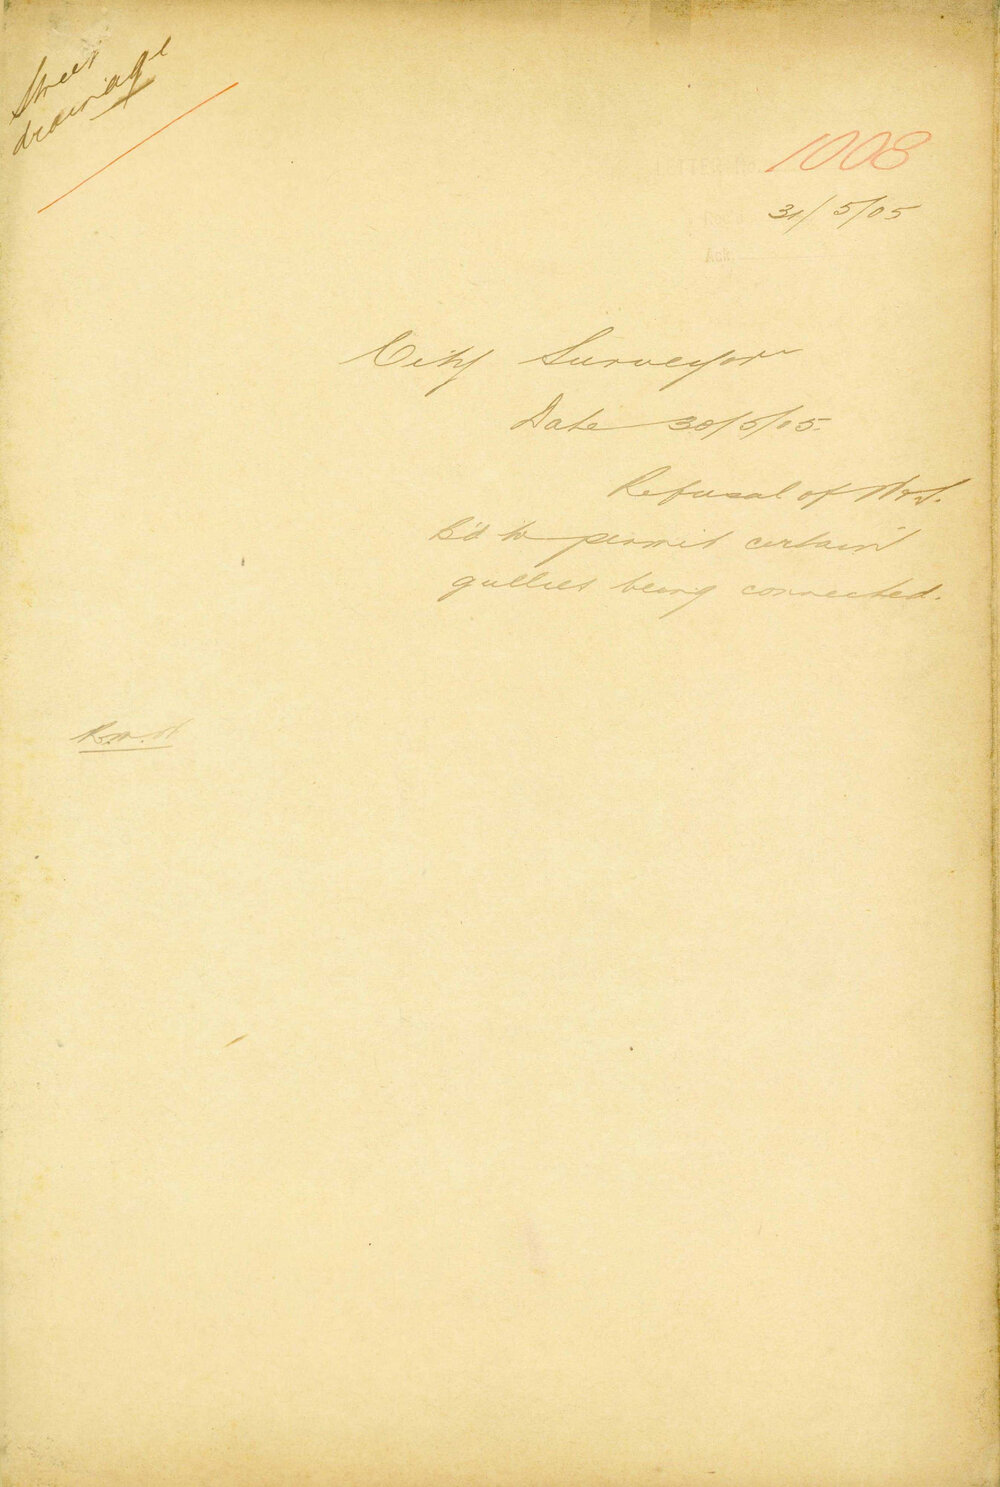 Street
drainage
1008
31/5/05
City Surveyor
Date 30/5/05.
Refusal of W & S.
B'd to permit certain
gullies being connected.